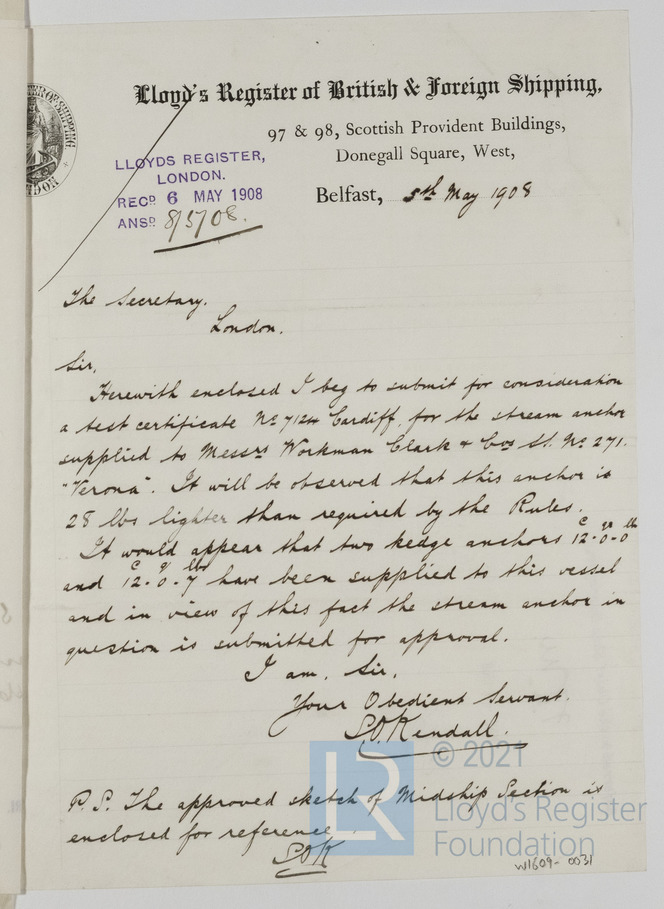 Lloyd's Register of British & Foreign Shipping,
97 & 98, Scottish Provident Buildings,
Donegall Square, West,
LLOYDS REGISTER,
LONDON.
RECD 6 MAY 1908
ANSD 8/5/08.
Belfast, 5th May 1908
The Secretary.
London.
Sir,
Herewith enclosed I beg to submit for consideration
a test certificate No 7124 Cardiff. for the stream anchor
supplied to Messrs Workman Clark & Cos St. No 271.
"Verona". It will be observed that this anchor is
28 lbs lighter than required by the Rules.
It would appear that two kedge anchors 12c-0qr-0lb
and 12c-0q-7lbs have been supplied to this vessel
and in view of this fact the stream anchor in
question is submitted for approval.
I am, Sir,
Your Obedient Servant.
S.O.Kendall.
P.S. The approved sketch of Midship Section is
enclosed for reference.
SOK
© 2021
LR Lloyd's Register
Foundation
W1609-0031